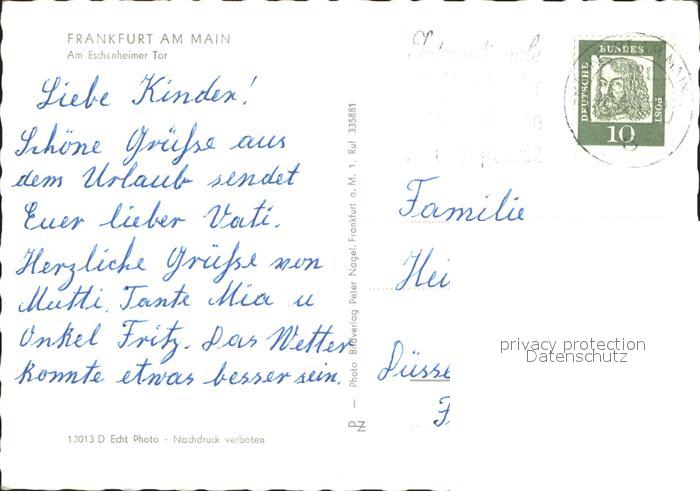 FRANKFURT AM MAIN
Am Eschenheimer Tor
Liebe Kinder!
Schöne Grüße aus
dem Urlaub sendet
Euer lieber Vati.
Herzliche Grüße von
Mutti, Tante Mia u
Onkel Fritz. Das Wetter
konnte etwas besser sein.
13013 D Echt Photo - Nachdruck verboten
PN — Photo Bildverlag Peter Nagel, Frankfurt a. M. 1, Ruf 335881
Internationale
62
DEUTSCHE
BUNDES
POST
10
MAIN
Familie
Hei
Düsse
privacy protection
Datenschutz